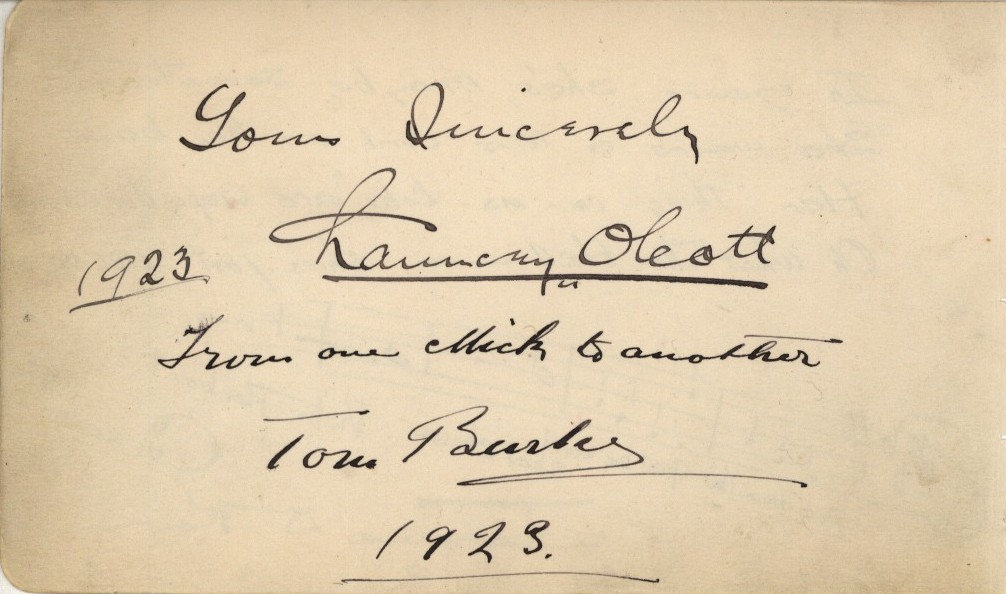 Yours Sincerely
Chauncey Olcott
1923
From one Mick to another
Tom Burke
1923.